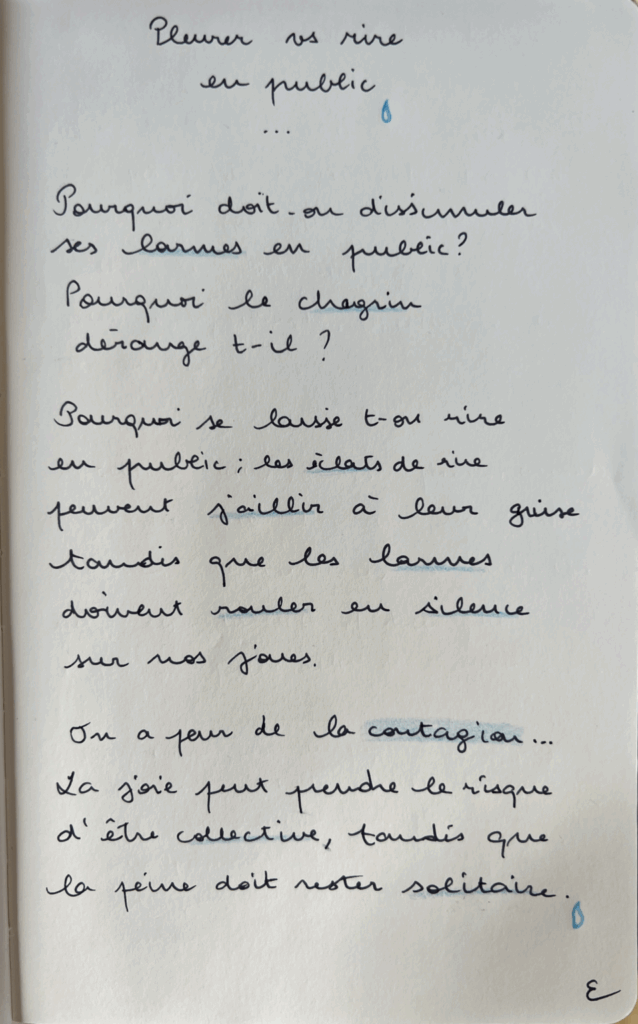 Pleurer vs rire
en public
...
Pourquoi doit-on dissimuler
ses larmes en public ?
Pourquoi le chagrin
dérange t-il ?
Pourquoi se laisse t-on rire
en public ; les éclats de rire
peuvent jaillir à leur guise
tandis que les larmes
doivent rouler en silence
sur nos joues.
On a peur de la contagion...
La joie peut prendre le risque
d'être collective, tandis que
la peine doit rester solitaire.
E